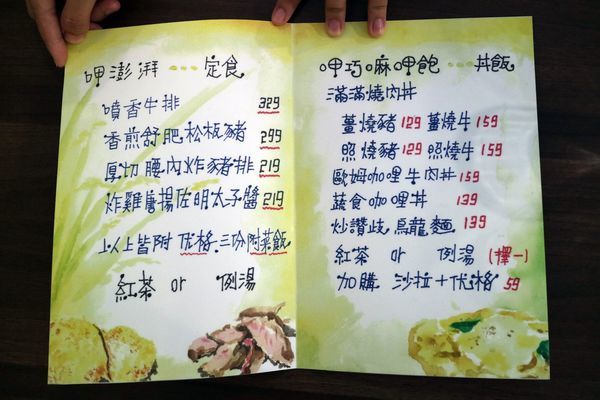 呷澎湃 … 定食
噴香牛排 329
香煎舒肥松板豬 299
厚切腰內炸豬排 219
炸雞唐揚佐明太子醬 219
以上皆附优格.三份附菜飯
紅茶 or 例湯
呷巧嘛呷飽 … 丼飯
滿滿燒肉丼
薑燒豬 129 薑燒牛 159
照燒豬 129 照燒牛 159
歐姆咖哩牛肉丼 159
蔬食咖哩丼 139
炒讚歧烏龍麵 139
紅茶 or 例湯 (擇一)
加購 沙拉+优格 59